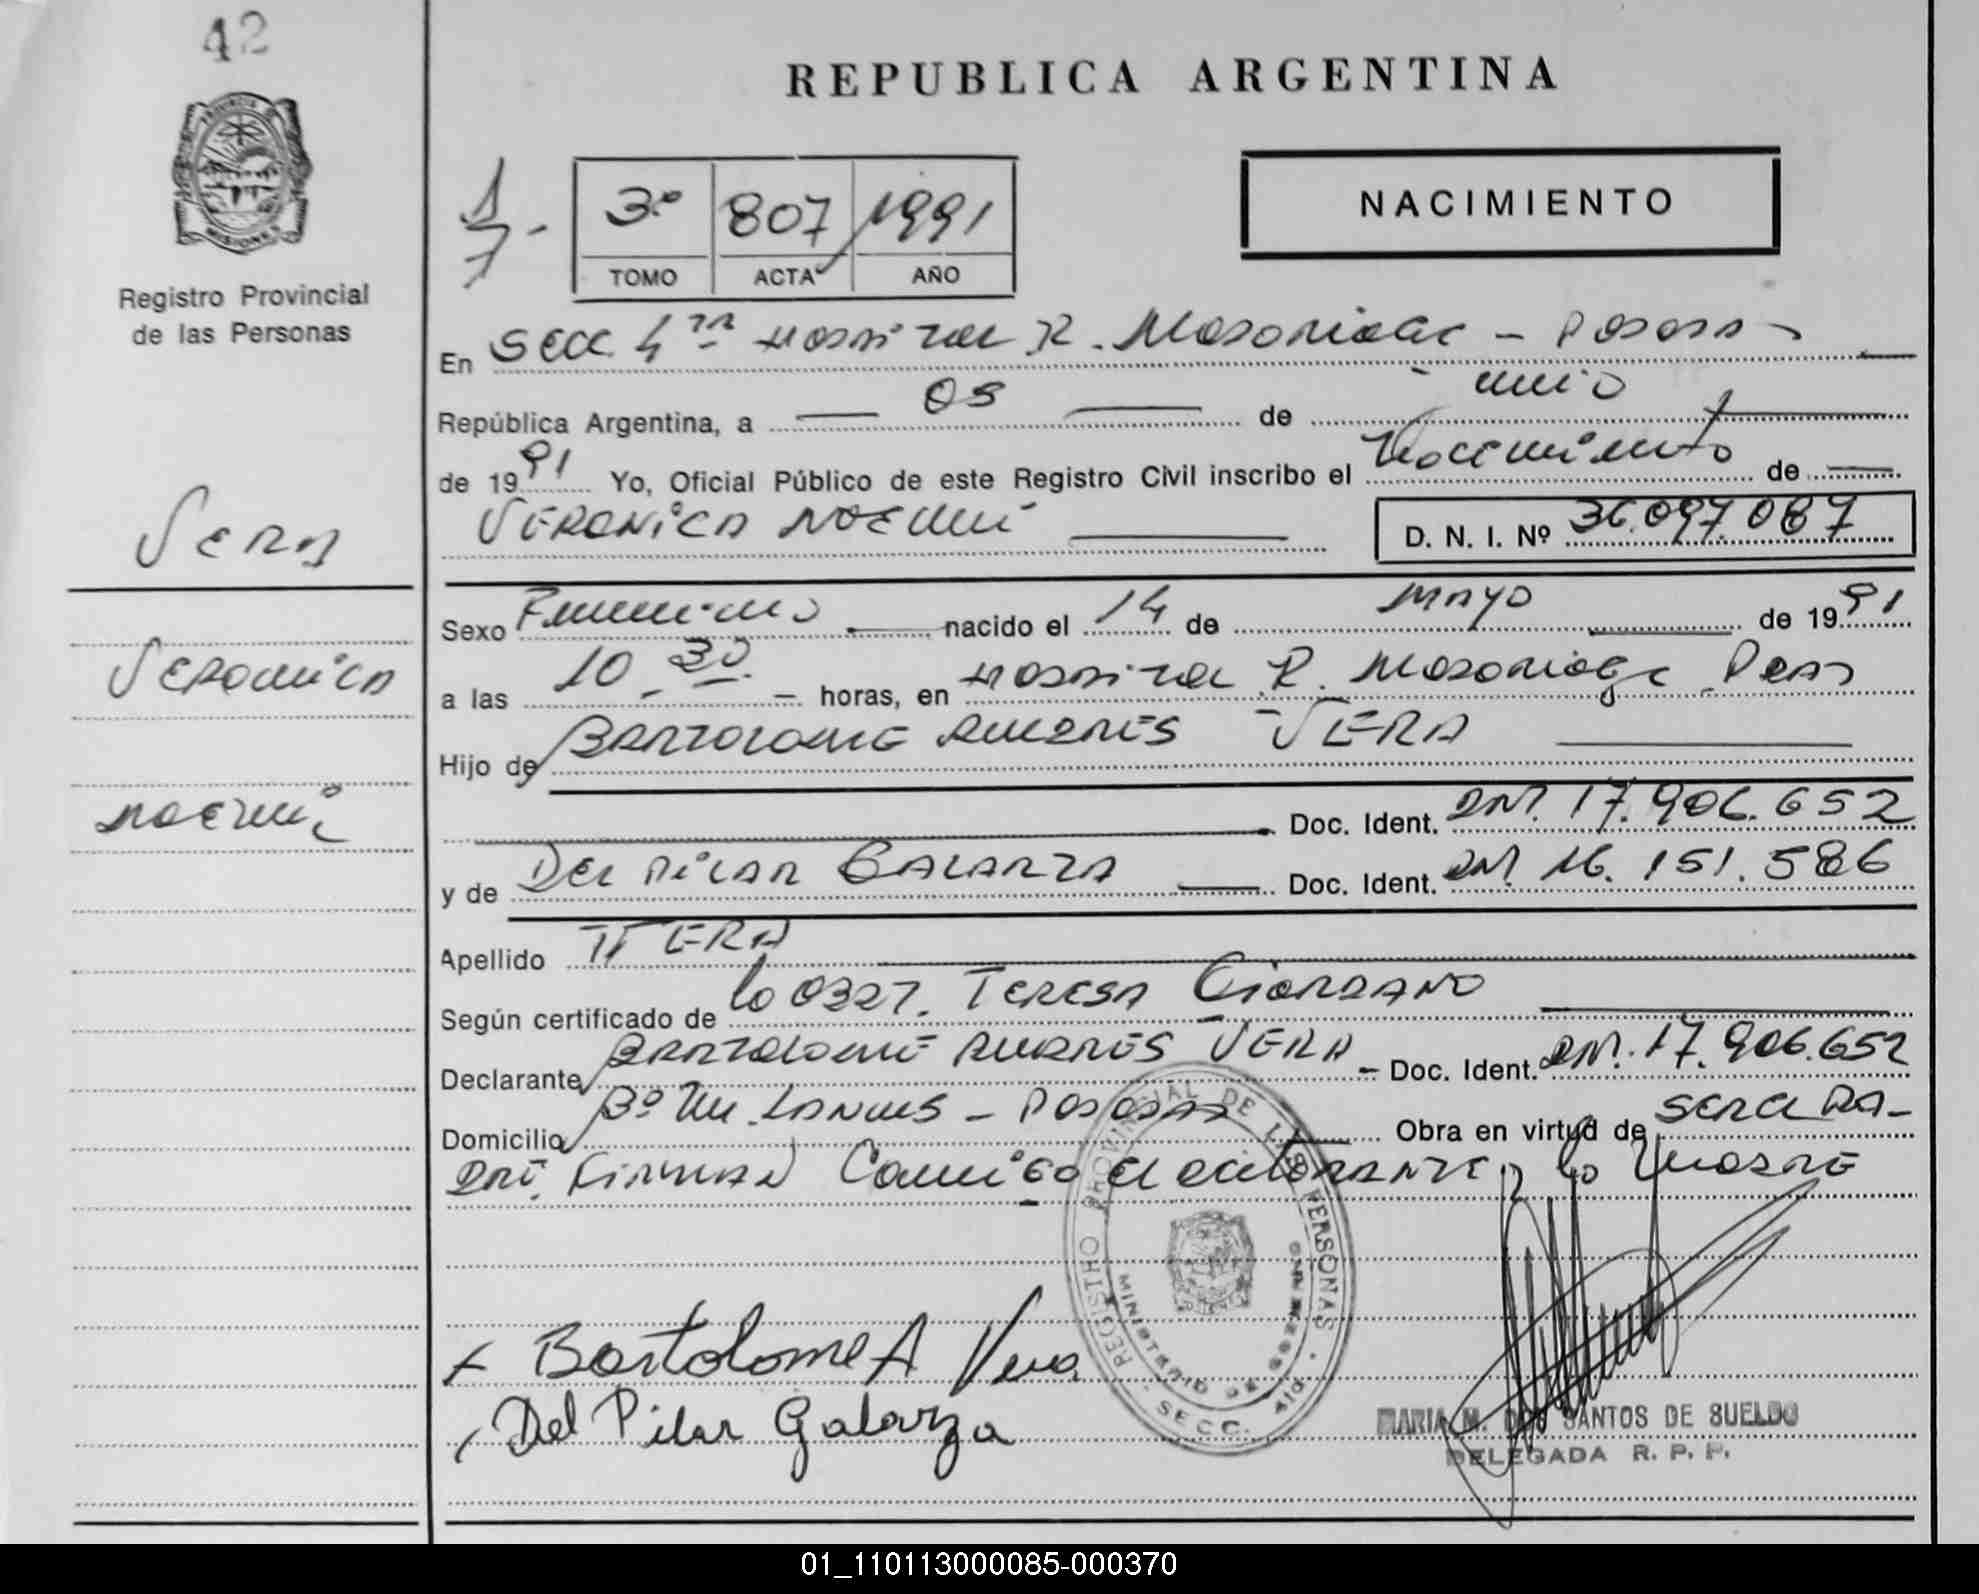 42
REPUBLICA ARGENTINA
NACIMIENTO
1/7-
3º 807 1991
TOMO ACTA AÑO
MISIONES
Registro Provincial
de las Personas
En SECC. 4ta Hospital R. Madariaga - Posadas
República Argentina, a 05 de Junio
de 1991 Yo, Oficial Público de este Registro Civil inscribo el Nacimiento de
VERONICA NOEMI
D. N. I. Nº 36.097.087
VERA
VERONICA
NOEMI
Sexo Femenino nacido el 14 de MAYO de 1991
a las 10-30 - horas, en Hospital R. Madariaga Pdas
Hijo de BARTOLOME ANDRES VERA
Doc. Ident. DNI. 17.906.652
y de DEL PILAR GALARZA Doc. Ident. DNI 16.151.586
Apellido VERA
Según certificado de lo 0327. TERESA GIORDANO
Declarante BARTOLOME ANDRES VERA - Doc. Ident. DNI. 17.906.652
Domicilio Bº LANUS - POSADAS Obra en virtud de SER EL PA-
DRE. FIRMAN Conmigo el declarante y la Madre
REGISTRO PROVINCIAL DE LAS PERSONAS
MINISTERIO DE GOBIERNO
SECC. 4ta
Bartolome A Vera
Del Pilar Galarza
MARIA M. DOS SANTOS DE SUELDO
DELEGADA R. P. P.
01_110113000085-000370